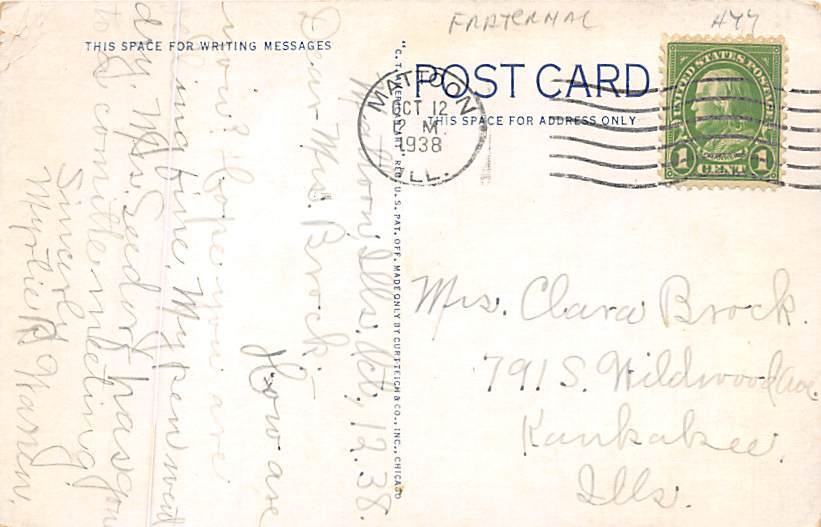 FRATERNAL
THIS SPACE FOR WRITING MESSAGES
POST CARD
THIS SPACE FOR ADDRESS ONLY
MATTOON
OCT 12
M
1938
ILL.
UNITED STATES POSTAGE
1 CENT 1
REG. U.S. PAT. OFF. MADE ONLY BY CURT TEICH & CO., INC., CHICAGO
Mattoon, Ills. Oct, 12. 38.
Dear Mrs. Brock,-
How are
now? Hope you are
feeling fine. My pen went
dry. Mrs. Seedorf has gone
to a committe meeting
Sincerly
Myrtie Warren.
Mrs. Clara Brock.
791 S. Wildwood Ave.
Kankakee,
Ills.